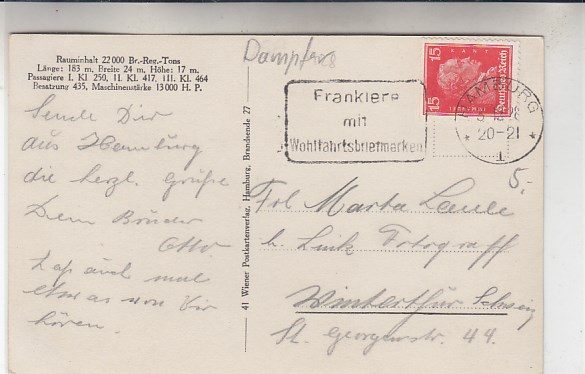 Rauminhalt 22000 Br.-Reg.-Tons
Länge: 183 m, Breite 24 m, Höhe: 17 m.
Passagiere I. Kl 250, II. Kl. 417, III. Kl. 464
Besatzung 435, Maschinenstärke 13000 H. P.
Dampfer
Frankiere
mit
Wohlfahrtsbriefmarken
15 15
KANT
Deutsches Reich
HAMBURG
20-21
* 1 *
5.-
Sende Dir
aus Hamburg
die herzl. Grüße
Dein Bruder
Otto
Laß auch mal
etwas von Dir
hören.
41 Wiener Postkartenverlag, Hamburg, Brandsende 27
Frl Marta
b. Link Fotograff
Winterthur Schweiz
St. Georgenstr. 44.